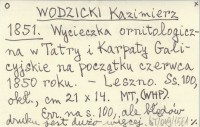 WODZICKI Kazimierz
1851. Wycieczka ornitologicz-
na w Tatry i Karpaty Gali-
cyjskie na początku czerwca
1850 roku. - Leszno. Ss. 100,
okł., cm 21 x 14. MT, (WHP).
Err. na s. 100, ale błędów
druku jest dużo więcej.